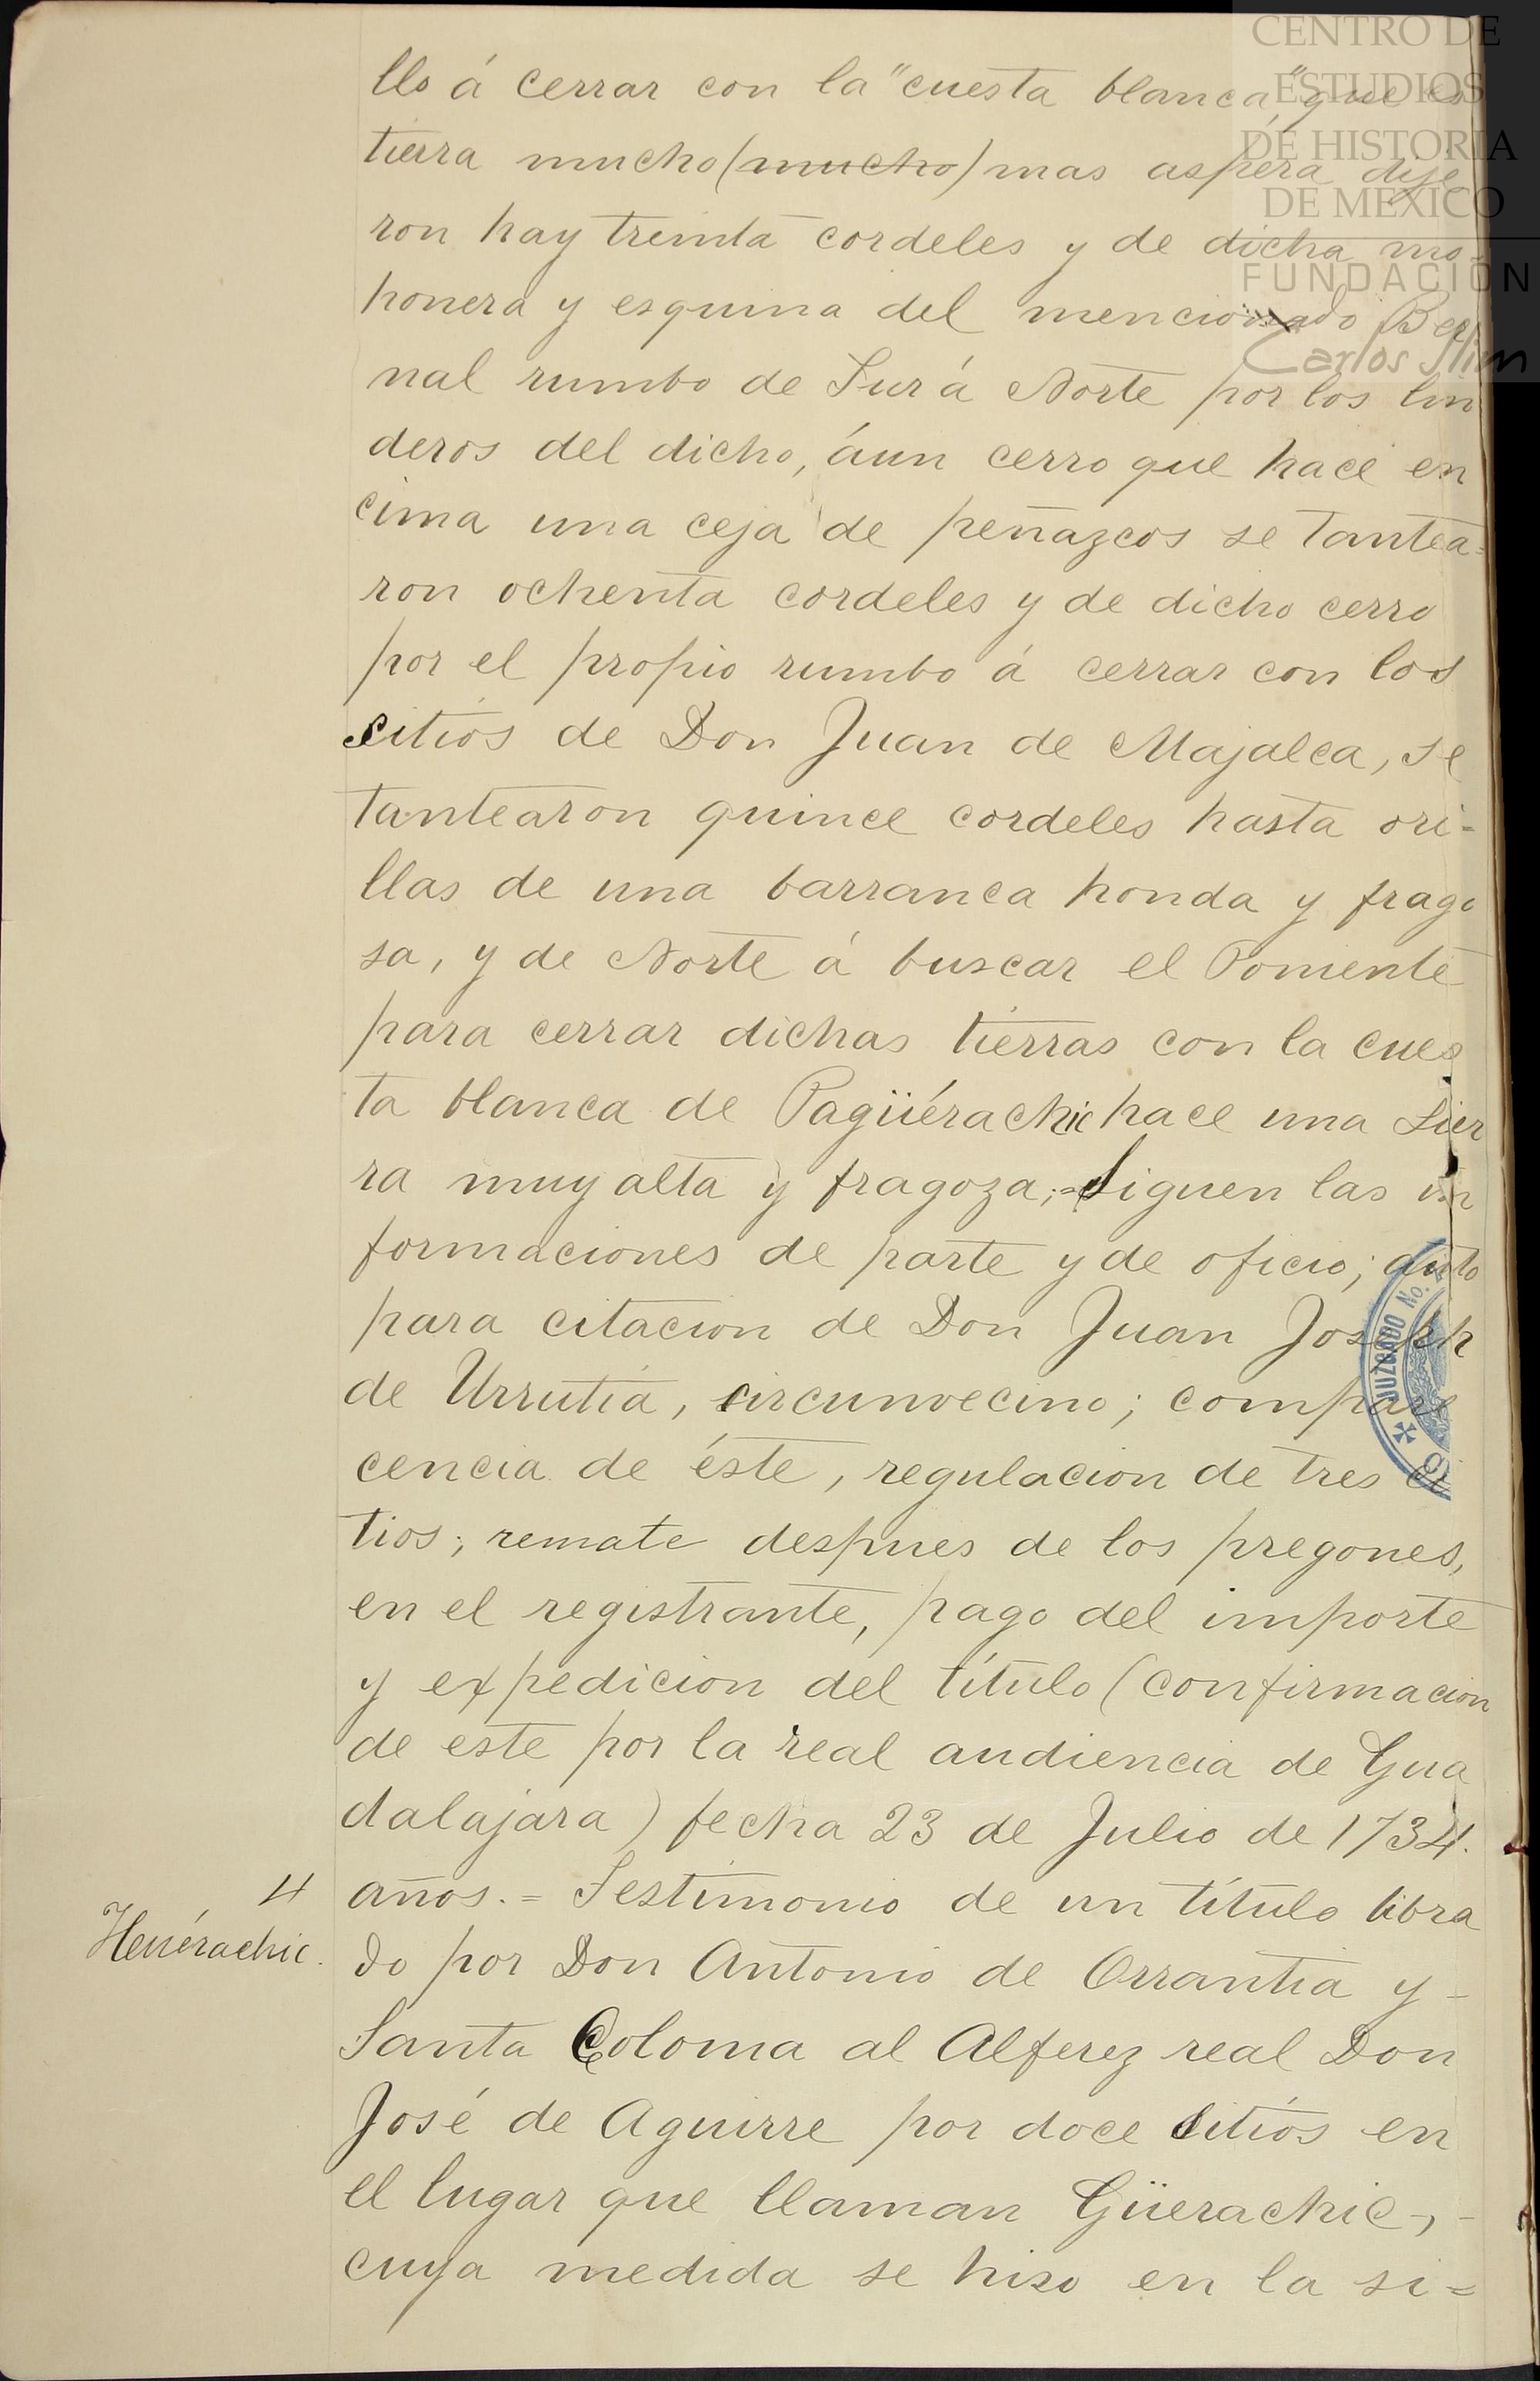 CENTRO DE
ESTUDIOS
DE HISTORIA
DE MEXICO
FUNDACIÓN
Carlos Slim
llo á cerrar con la "cuesta blanca," que es
tierra mucho (mucho) mas aspera dije
ron hay treinta cordeles y de dicha mo-
honera y esquina del mencionado Ber
nal rumbo de Sur á Norte por los lin
deros del dicho, áun cerro que hace en
cima una ceja de peñazcos se tantea=
ron ochenta cordeles y de dicho cerro
por el propio rumbo á cerrar con los
sitios de Don Juan de Majalca, se
tantearon quince cordeles hasta ori-
llas de una barranca honda y frago
sa, y de Norte á buscar el Poniente
para cerrar dichas tierras con la cues
ta blanca de Pagüérachic hace una Sier
ra muy alta y fragoza;= Siguen las in
formaciones de parte y de oficio; auto
para citacion de Don Juan Joseph
de Urrutia, circunvecino; compare
cencia de éste, regulacion de tres si
tios; remate despues de los pregones,
en el registrante, pago del importe
y expedicion del título (confirmacion
de este por la real audiencia de Gua
dalajara) fecha 23 de Julio de 1734.
4 años.= Testimonio de un título libra
Henérachic. do por Don Antonio de Orrantia y-
Santa Coloma al Alferez real Don
José de Aguirre por doce sitios en
el lugar que llaman Güerachic,-
cuya medida se hizo en la si=
JUZGADO No.